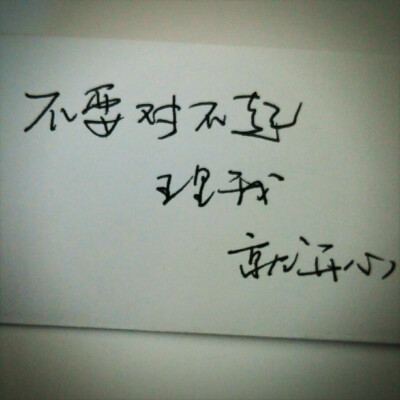 不要对不起
理我
就开心